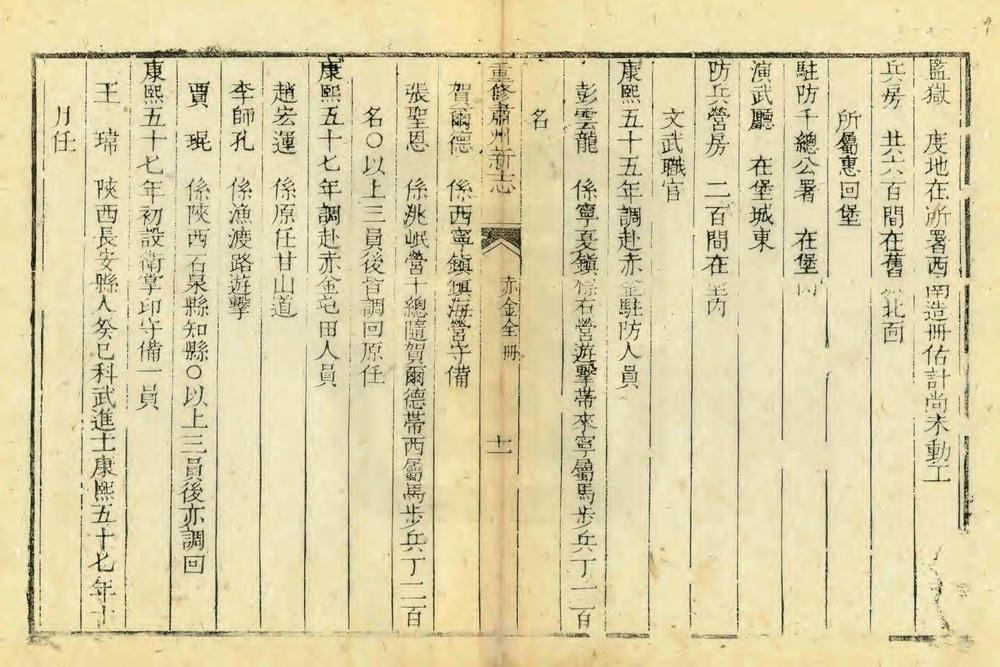 監獄 度地在所署西南造冊估計尚未動工
兵房 共六百間在舊 北面
所屬惠回堡
駐防千總公署 在堡內
演武廳 在堡城東
防兵營房 二百間在 內
文武職官
康熙五十五年調赴赤金駐防人員
彭雲龍 係寧夏鎮 右營遊擊帶來寧屬馬步兵丁二百
名
重修肅州新志 赤金全冊 十一
賀爾德 係西寧鎮鎮海營守備
張聖恩 係洮岷營千總隨賀爾德帶西屬馬步兵丁二百
名〇以上三員後皆調回原任
康熙五十七年調赴赤金屯田人員
趙宏運 係原任甘山道
李師孔 係漁渡路遊擊
賈琨 係陝西石泉縣知縣〇以上三員後亦調回
康熙五十七年初設衛掌印守備一員
王 陝西長安縣人癸巳科武進士康熙五十七年十
月任